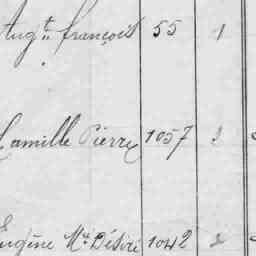 Augt. françois 55 1
Camille Pierre 1057
Eugène Mie Désiré 1042